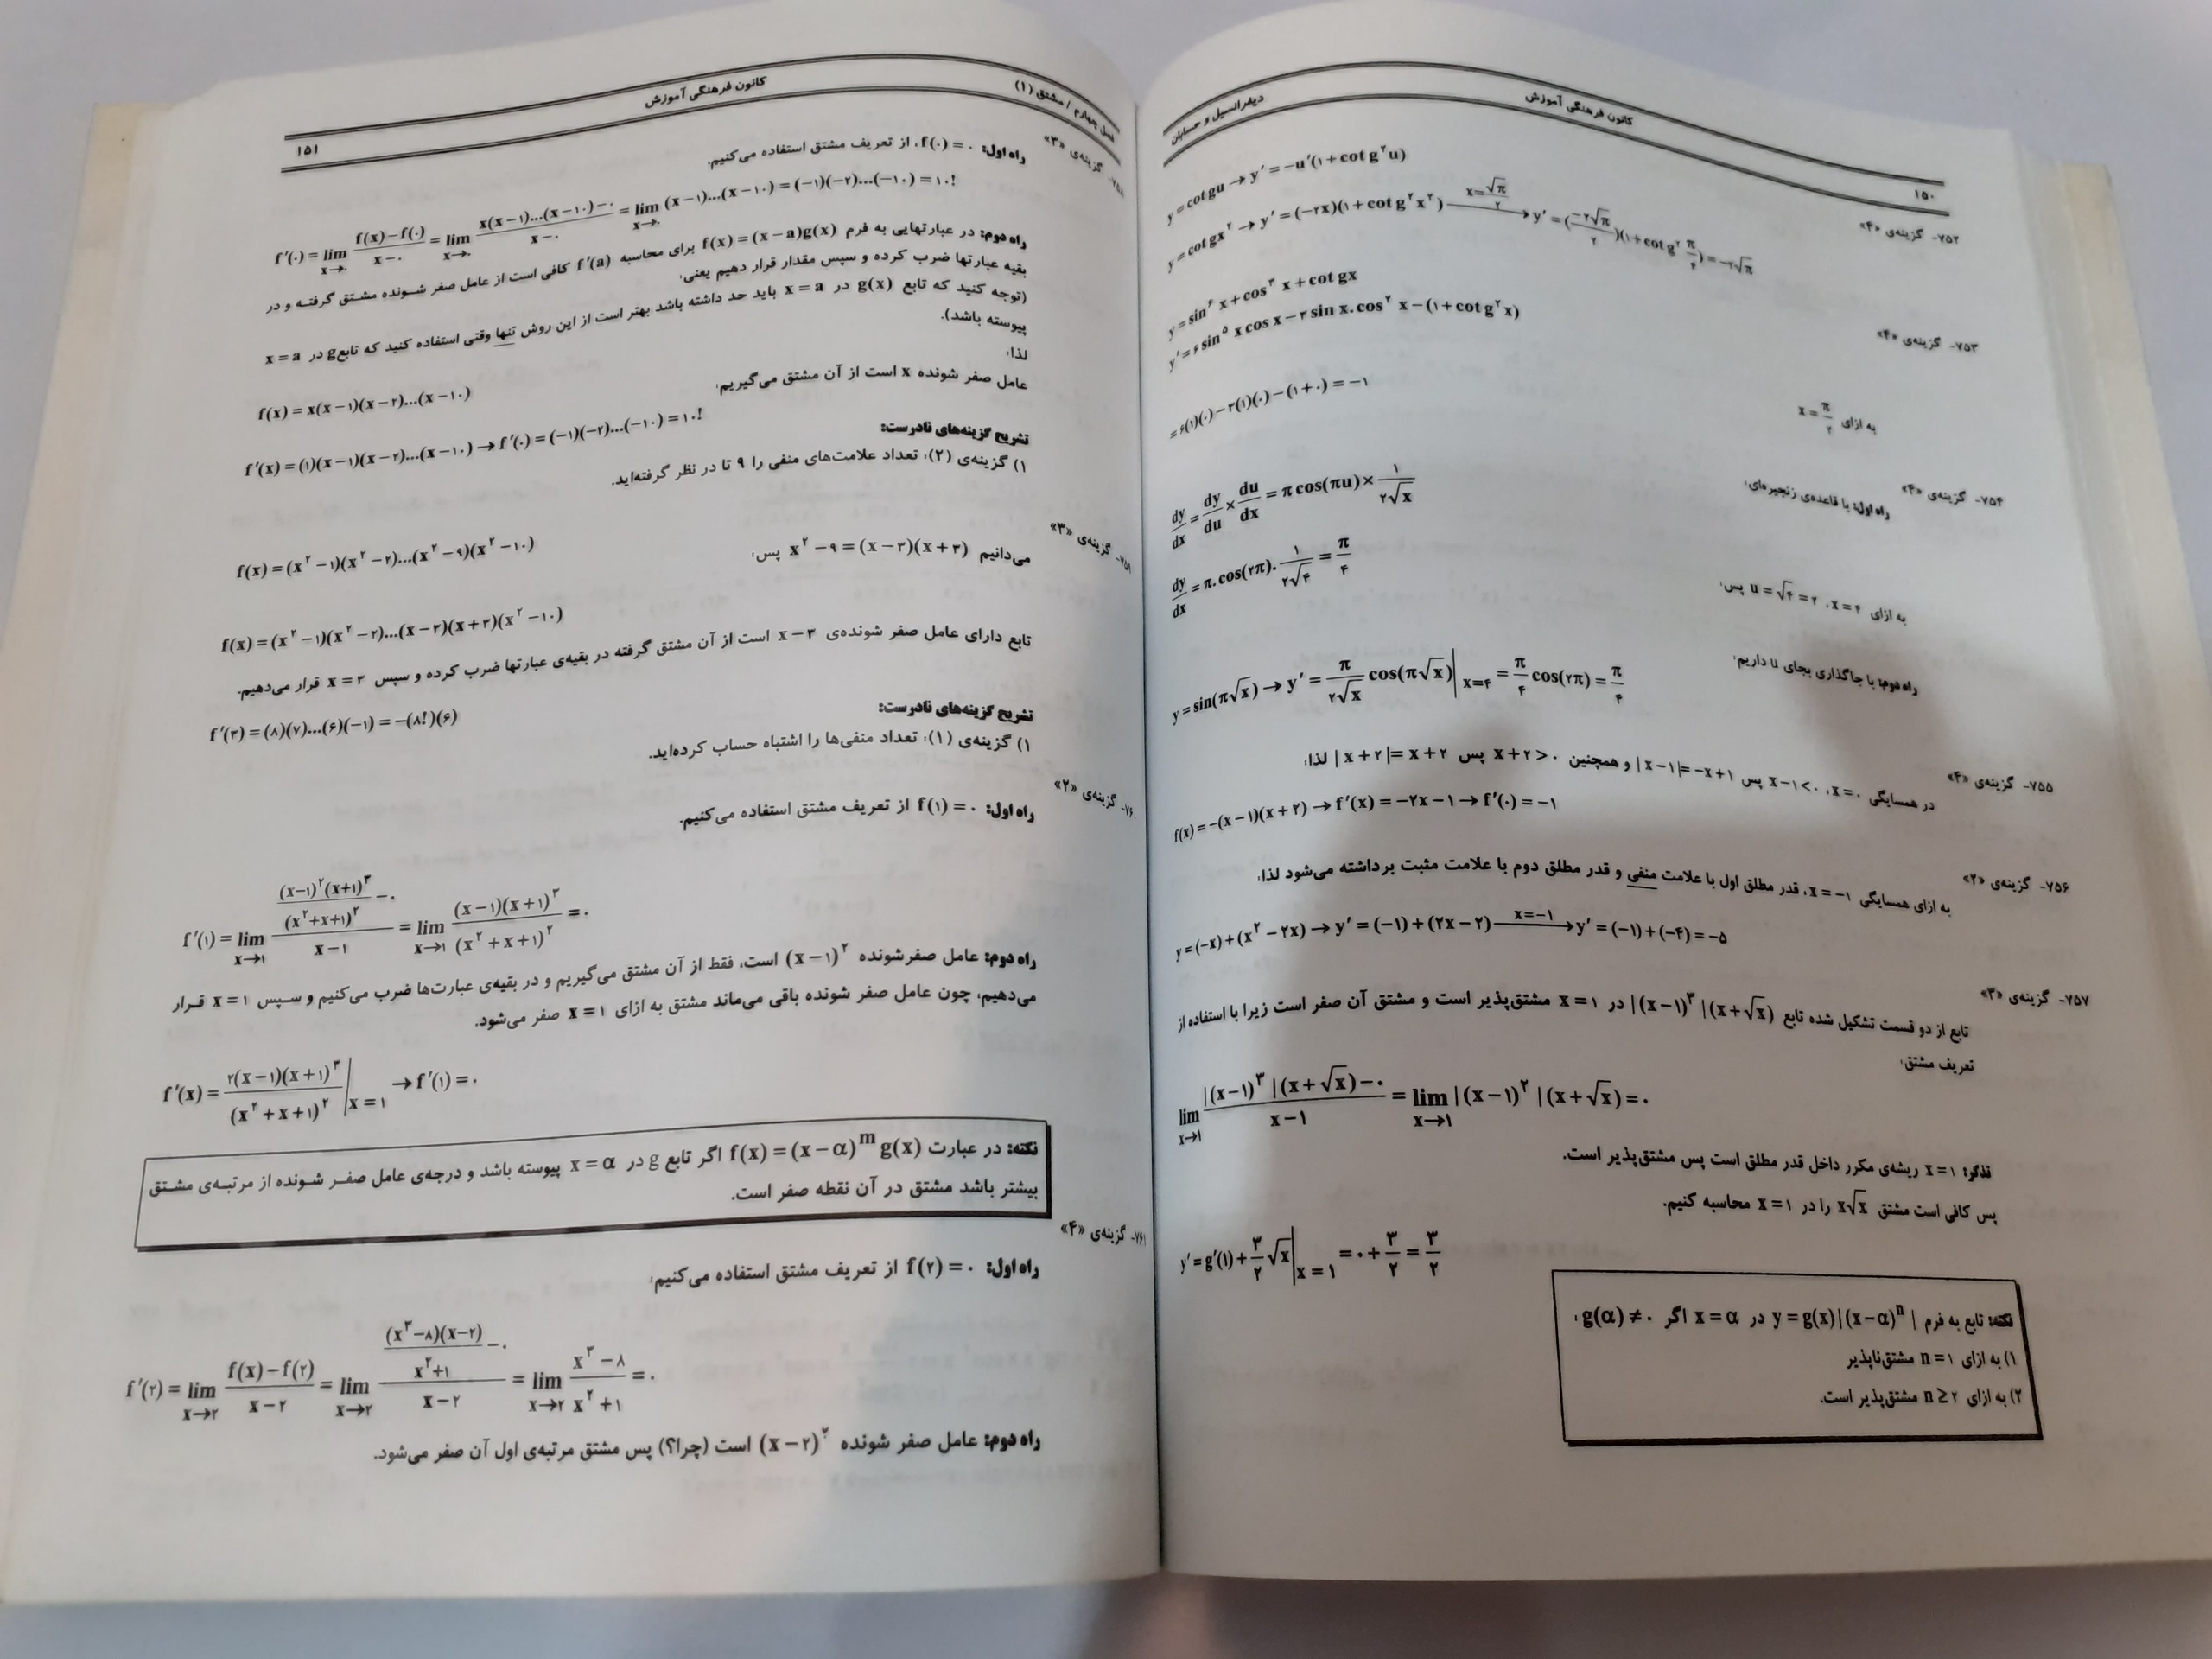 ۱۵۰
کانون فرهنگی آموزش
دیفرانسیل و حسابان
۷۵۲- گزینه‌ی «۴»
y = cot gu → y′ = −u′(۱+cot g²u)
y = cot gx² → y′ = (−۲x)(۱+cot g²x²) x=√π/۲ → y′ = (−۲√π/۲)(۱+cot g² π/۴) = −۲√π
۷۵۳- گزینه‌ی «۴»
y = sin⁶ x + cos³ x + cot gx
y′ = ۶ sin⁵ x cos x − ۳ sin x. cos² x − (۱+cot g² x)
به ازای x = π/۲
= ۶(۱)(۰) − ۳(۱)(۰) − (۱+۰) = −۱
۷۵۴- گزینه‌ی «۴»
راه اول: با قاعده‌ی زنجیره‌ای:
dy/dx = dy/du × du/dx = π cos(πu) × ۱/۲√x
به ازای x = ۴، u = √۴ = ۲ پس:
dy/dx = π. cos(۲π). ۱/۲√۴ = π/۴
راه دوم: با جاگذاری بجای u داریم:
y = sin(π√x) → y′ = π/۲√x cos(π√x)|x=۴ = π/۴ cos(۲π) = π/۴
۷۵۵- گزینه‌ی «۴»
در همسایگی x = ۰، x−۱<۰ پس |x−۱|= −x+۱ و همچنین x+۲>۰ پس |x+۲|= x+۲ لذا:
f(x) = −(x−۱)(x+۲) → f′(x) = −۲x−۱ → f′(۰) = −۱
۷۵۶- گزینه‌ی «۲»
به ازای همسایگی x = −۱، قدر مطلق اول با علامت منفی و قدر مطلق دوم با علامت مثبت برداشته می‌شود لذا:
y = (−x) + (x² − ۲x) → y′ = (−۱) + (۲x−۲) x=−۱ → y′ = (−۱) + (−۴) = −۵
۷۵۷- گزینه‌ی «۳»
تابع از دو قسمت تشکیل شده تابع |(x−۱)³|(x+√x) در x = ۱ مشتق‌پذیر است و مشتق آن صفر است زیرا با استفاده از
تعریف مشتق:
lim x→۱ |(x−۱)³|(x+√x)−۰ / x−۱ = lim x→۱ |(x−۱)²|(x+√x) = ۰
تذکر: x = ۱ ریشه‌ی مکرر داخل قدر مطلق است پس مشتق‌پذیر است.
پس کافی است مشتق x√x را در x = ۱ محاسبه کنیم.
y′ = g′(۱) + ۳/۲ √x |x=۱ = ۰ + ۳/۲ = ۳/۲
نکته: تابع به فرم y = g(x)|(x−α)ⁿ| در x = α اگر g(α) ≠ ۰:
۱) به ازای n = ۱ مشتق‌ناپذیر
۲) به ازای n ≥ ۲ مشتق‌پذیر است.
فصل چهارم / مشتق (۱)
کانون فرهنگی آموزش
۱۵۱
۷۵۸- گزینه‌ی «۳»
راه اول: f(۰) = ۰، از تعریف مشتق استفاده می‌کنیم.
f′(۰) = lim x→۰ f(x)−f(۰) / x−۰ = lim x→۰ x(x−۱)...(x−۱۰)−۰ / x−۰ = lim x→۰ (x−۱)...(x−۱۰) = (−۱)(−۲)...(−۱۰) = ۱۰!
راه دوم: در عبارتهایی به فرم f(x) = (x−a)g(x) برای محاسبه f′(a) کافی است از عامل صفر شونده مشتق گرفته و در
بقیه عبارتها ضرب کرده و سپس مقدار قرار دهیم یعنی:
(توجه کنید که تابع g(x) در x = a باید حد داشته باشد بهتر است از این روش تنها وقتی استفاده کنید که تابع g در x = a
پیوسته باشد).
لذا:
عامل صفر شونده x است از آن مشتق می‌گیریم:
f(x) = x(x−۱)(x−۲)...(x−۱۰)
f′(x) = (۱)(x−۱)(x−۲)...(x−۱۰) → f′(۰) = (−۱)(−۲)...(−۱۰) = ۱۰!
تشریح گزینه‌های نادرست:
۱) گزینه‌ی (۲): تعداد علامت‌های منفی را ۹ تا در نظر گرفته‌اید.
۷۵۹- گزینه‌ی «۳»
f(x) = (x²−۱)(x²−۲)...(x²−۹)(x²−۱۰)
می‌دانیم x²−۹ = (x−۳)(x+۳) پس:
f(x) = (x²−۱)(x²−۲)...(x−۳)(x+۳)(x²−۱۰)
تابع دارای عامل صفر شونده‌ی x−۳ است از آن مشتق گرفته در بقیه‌ی عبارتها ضرب کرده و سپس x = ۳ قرار می‌دهیم.
f′(۳) = (۸)(۷)...(۶)(−۱) = −(۸!)(۶)
تشریح گزینه‌های نادرست:
۱) گزینه‌ی (۱): تعداد منفی‌ها را اشتباه حساب کرده‌اید.
۷۶۰- گزینه‌ی «۲»
راه اول: f(۱) = ۰ از تعریف مشتق استفاده می‌کنیم.
f′(۱) = lim x→۱ ((x−۱)²(x+۱)³ / (x²+x+۱)² − ۰) / x−۱ = lim x→۱ (x−۱)(x+۱)³ / (x²+x+۱)² = ۰
راه دوم: عامل صفرشونده (x−۱)² است، فقط از آن مشتق می‌گیریم و در بقیه‌ی عبارت‌ها ضرب می‌کنیم و سپس x = ۱ قرار
می‌دهیم، چون عامل صفر شونده باقی می‌ماند مشتق به ازای x = ۱ صفر می‌شود.
f′(x) = ۲(x−۱)(x+۱)³ / (x²+x+۱)² |x=۱ → f′(۱) = ۰
نکته: در عبارت f(x) = (x−α)ᵐ g(x) اگر تابع g در x = α پیوسته باشد و درجه‌ی عامل صفر شونده از مرتبه‌ی مشتق
بیشتر باشد مشتق در آن نقطه صفر است.
۷۶۱- گزینه‌ی «۴»
راه اول: f(۲) = ۰ از تعریف مشتق استفاده می‌کنیم:
f′(۲) = lim x→۲ f(x)−f(۲) / x−۲ = lim x→۲ ((x³−۸)(x−۲) / x²+۱ − ۰) / x−۲ = lim x→۲ x³−۸ / x²+۱ = ۰
راه دوم: عامل صفر شونده (x−۲)² است (چرا؟) پس مشتق مرتبه‌ی اول آن صفر می‌شود.